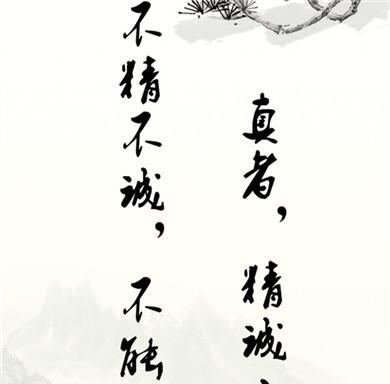 真者，精诚
不精不诚，不能